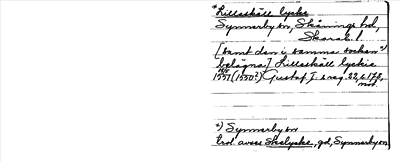 *Lilleskäll lycke
Synnerby sn, Skånings hd,
Skarab. l.
[samt den i samma socken *)
belägna] Lilleskäll lyckie
1551 (1550?) Gustaf I:s reg. 22, s. 173,
*) Synnerby sn
trol. avses Skelycke, gd, Synnerby sn